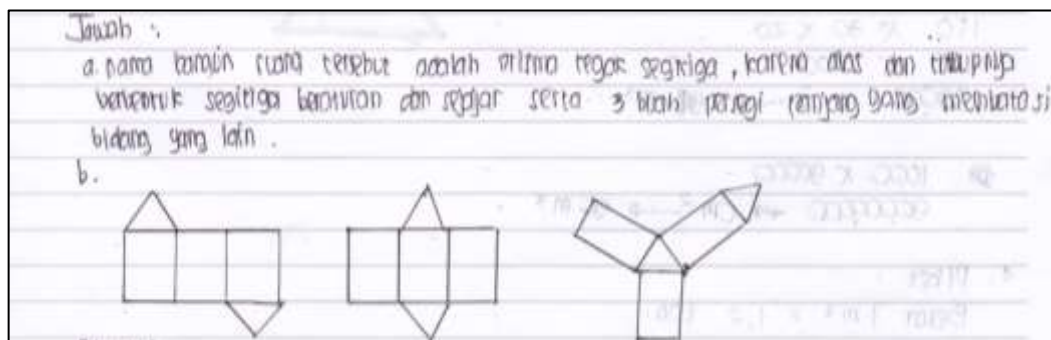 Jawab :
a. nama bangun ruang tersebut adalah prisma tegak segitiga, karena alas dan tutupnya
berbentuk segitiga beraturan dan sejajar serta 3 buah persegi panjang yang membatasi
bidang yang lain.
b.